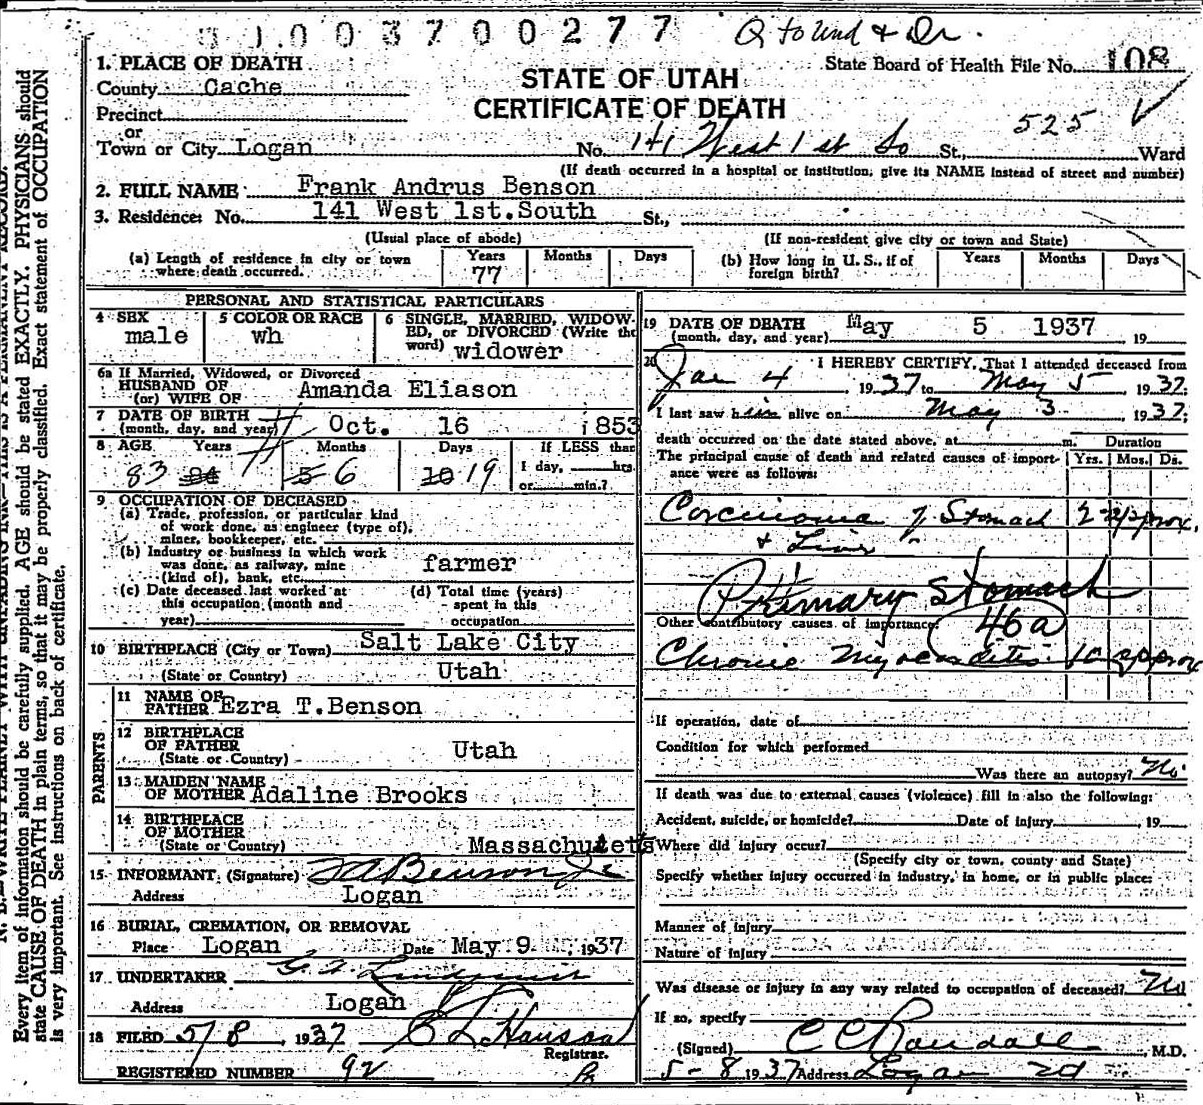 31003700277 Q to Und & Dr.
State Board of Health File No. 108
STATE OF UTAH
CERTIFICATE OF DEATH
1. PLACE OF DEATH
County Cache
Precinct
or
525
Town or City Logan No. 141 West 1 st So St., Ward
(If death occurred in a hospital or institution, give its NAME instead of street and number)
2. FULL NAME Frank Andrus Benson
3. Residence: No. 141 West 1st. South St.,
(Usual place of abode) (If non-resident give city or town and State)
(a) Length of residence in city or town where death occurred. Years 77 Months Days
(b) How long in U. S., if of foreign birth? Years Months Days
PERSONAL AND STATISTICAL PARTICULARS
4 SEX male
5 COLOR OR RACE wh
6 SINGLE, MARRIED, WIDOWED, or DIVORCED (Write the word) widower
6a If Married, Widowed, or Divorced
HUSBAND OF
(or) WIFE OF Amanda Eliason
7 DATE OF BIRTH
(month, day, and year) Oct. 16 1853
8 AGE Years Months Days If LESS than
83 84 5 6 20 19 1 day, hrs.
or min.?
9 OCCUPATION OF DECEASED
(a) Trade, profession, or particular kind
of work done, as engineer (type of),
miner, bookkeeper, etc.
(b) Industry or business in which work
was done, as railway, mine farmer
(kind of), bank, etc.
(c) Date deceased last worked at
this occupation (month and
year)
(d) Total time (years)
spent in this
occupation
10 BIRTHPLACE (City or Town) Salt Lake City
(State or Country) Utah
PARENTS
11 NAME OF
FATHER Ezra T. Benson
12 BIRTHPLACE
OF FATHER Utah
(State or Country)
13 MAIDEN NAME
OF MOTHER Adaline Brooks
14 BIRTHPLACE
OF MOTHER
(State or Country) Massachutetts
15 INFORMANT (Signature) F A Benson Jr
Address Logan
16 BURIAL, CREMATION, OR REMOVAL
Place Logan Date May 9, 1937
17 UNDERTAKER G. W. Lindquist
Address Logan
18 FILED 5/8, 1937
Registrar.
REGISTERED NUMBER 92
19 DATE OF DEATH May 5 1937
(month, day, and year) , 19
20 I HEREBY CERTIFY, That I attended deceased from
Jan 4, 1937 to May 5, 1937.
I last saw him alive on May 3, 1937;
death occurred on the date stated above, at m. Duration
The principal cause of death and related causes of importance were as follows: Yrs. Mos. Ds.
Carcinoma of Stomach 2 approx.
& Liver
Primary Stomach
Other contributory causes of importance: 46a
Chronic Myocarditis 10 approx
If operation, date of
Condition for which performed
Was there an autopsy? No
If death was due to external causes (violence) fill in also the following:
Accident, suicide, or homicide? Date of injury , 19
Where did injury occur?
(Specify city or town, county and State)
Specify whether injury occurred in industry, in home, or in public place:
Manner of injury
Nature of injury
Was disease or injury in any way related to occupation of deceased? No
If so, specify
(Signed) C C Randall, M.D.
5-8 1937 Address Logan
Every item of information should be carefully supplied. AGE should be stated EXACTLY. PHYSICIANS should
state CAUSE OF DEATH in plain terms, so that it may be properly classified. Exact statement of OCCUPATION
is very important. See instructions on back of certificate.